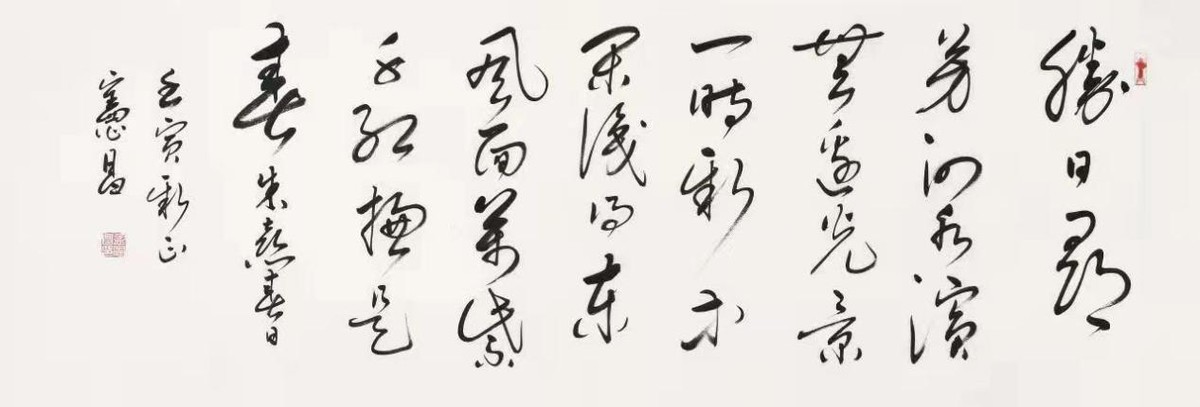 勝日尋
芳泗水濱
無邊光景
一時新等
閑識得東
風面萬紫
千紅總是
春 朱熹春日
壬寅新正
憲昌